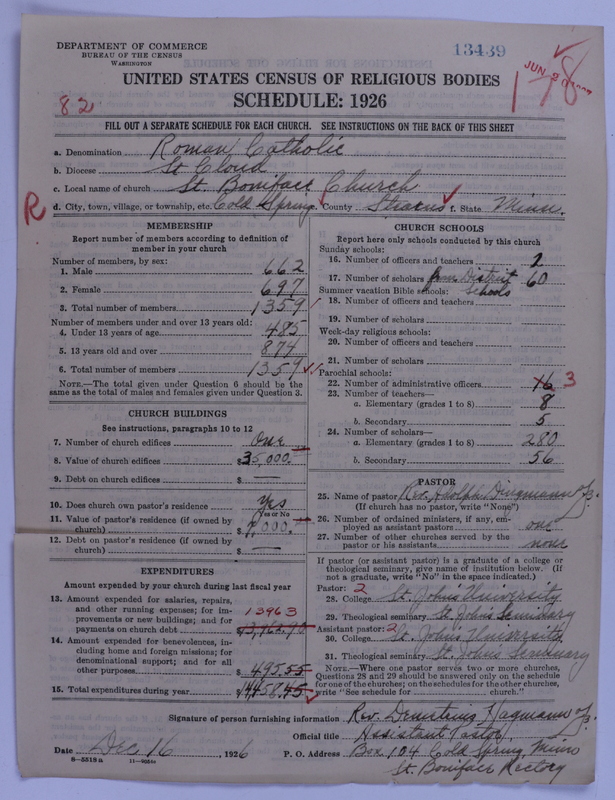 DEPARTMENT OF COMMERCE
BUREAU OF THE CENSUS
WASHINGTON
13439
JUN
UNITED STATES CENSUS OF RELIGIOUS BODIES
SCHEDULE: 1926
82
FILL OUT A SEPARATE SCHEDULE FOR EACH CHURCH. SEE INSTRUCTIONS ON THE BACK OF THIS SHEET
a. Denomination Roman Catholic
b. Diocese St Cloud
c. Local name of church St. Boniface Church
R
d. City, town, village, or township, etc. Cold Spring e. County Stearns f. State Minn.
MEMBERSHIP
Report number of members according to definition of member in your church
Number of members, by sex:
1. Male 662
2. Female 697
3. Total number of members 1359
Number of members under and over 13 years old:
4. Under 13 years of age 485
5. 13 years old and over 874
6. Total number of members 1359
NOTE.—The total given under Question 6 should be the
same as the total of males and females given under Question 3.
CHURCH BUILDINGS
See instructions, paragraphs 10 to 12
7. Number of church edifices One
8. Value of church edifices $35,000.
9. Debt on church edifices $ —
10. Does church own pastor's residence Yes
Yes or No
11. Value of pastor's residence (if owned by
church) $7,000.
12. Debt on pastor's residence (if owned by
church) $ —
EXPENDITURES
Amount expended by your church during last fiscal year
13. Amount expended for salaries, repairs,
and other running expenses; for im-
provements or new buildings; and for
payments on church debt 13963 $13,962.90
14. Amount expended for benevolences, in-
cluding home and foreign missions; for
denominational support; and for all
other purposes $495.55
15. Total expenditures during year $14458.45
CHURCH SCHOOLS
Report here only schools conducted by this church
Sunday schools:
16. Number of officers and teachers 2
17. Number of scholars from District 60
Summer vacation Bible schools: Schools
18. Number of officers and teachers
19. Number of scholars
Week-day religious schools:
20. Number of officers and teachers
21. Number of scholars
Parochial schools:
22. Number of administrative officers 16 3
23. Number of teachers—
a. Elementary (grades 1 to 8) 8
b. Secondary 5
24. Number of scholars—
a. Elementary (grades 1 to 8) 280
b. Secondary 56
PASTOR
25. Name of pastor Rev. Adolph Dingmann
(If church has no pastor, write "None")
26. Number of ordained ministers, if any, em-
ployed as assistant pastors one
27. Number of other churches served by the
pastor or his assistants none
If pastor (or assistant pastor) is a graduate of a college or
theological seminary, give name of institution below. (If
not a graduate, write "No" in the space indicated.)
Pastor: 2
28. College St. John's University
29. Theological seminary St. Johns Seminary
Assistant pastor: 2
30. College St. Johns University
31. Theological seminary St. Johns Seminary
NOTE.—Where one pastor serves two or more churches,
Questions 28 and 29 should be answered only on the schedule
for one of the churches; on the schedules for the other churches,
write "See schedule for church."
Signature of person furnishing information Rev. Demetrius Hagmann
Official title Assistant Pastor
Date Dec 16, 1926 P. O. Address Box 104 Cold Spring, Minn
St. Boniface Rectory